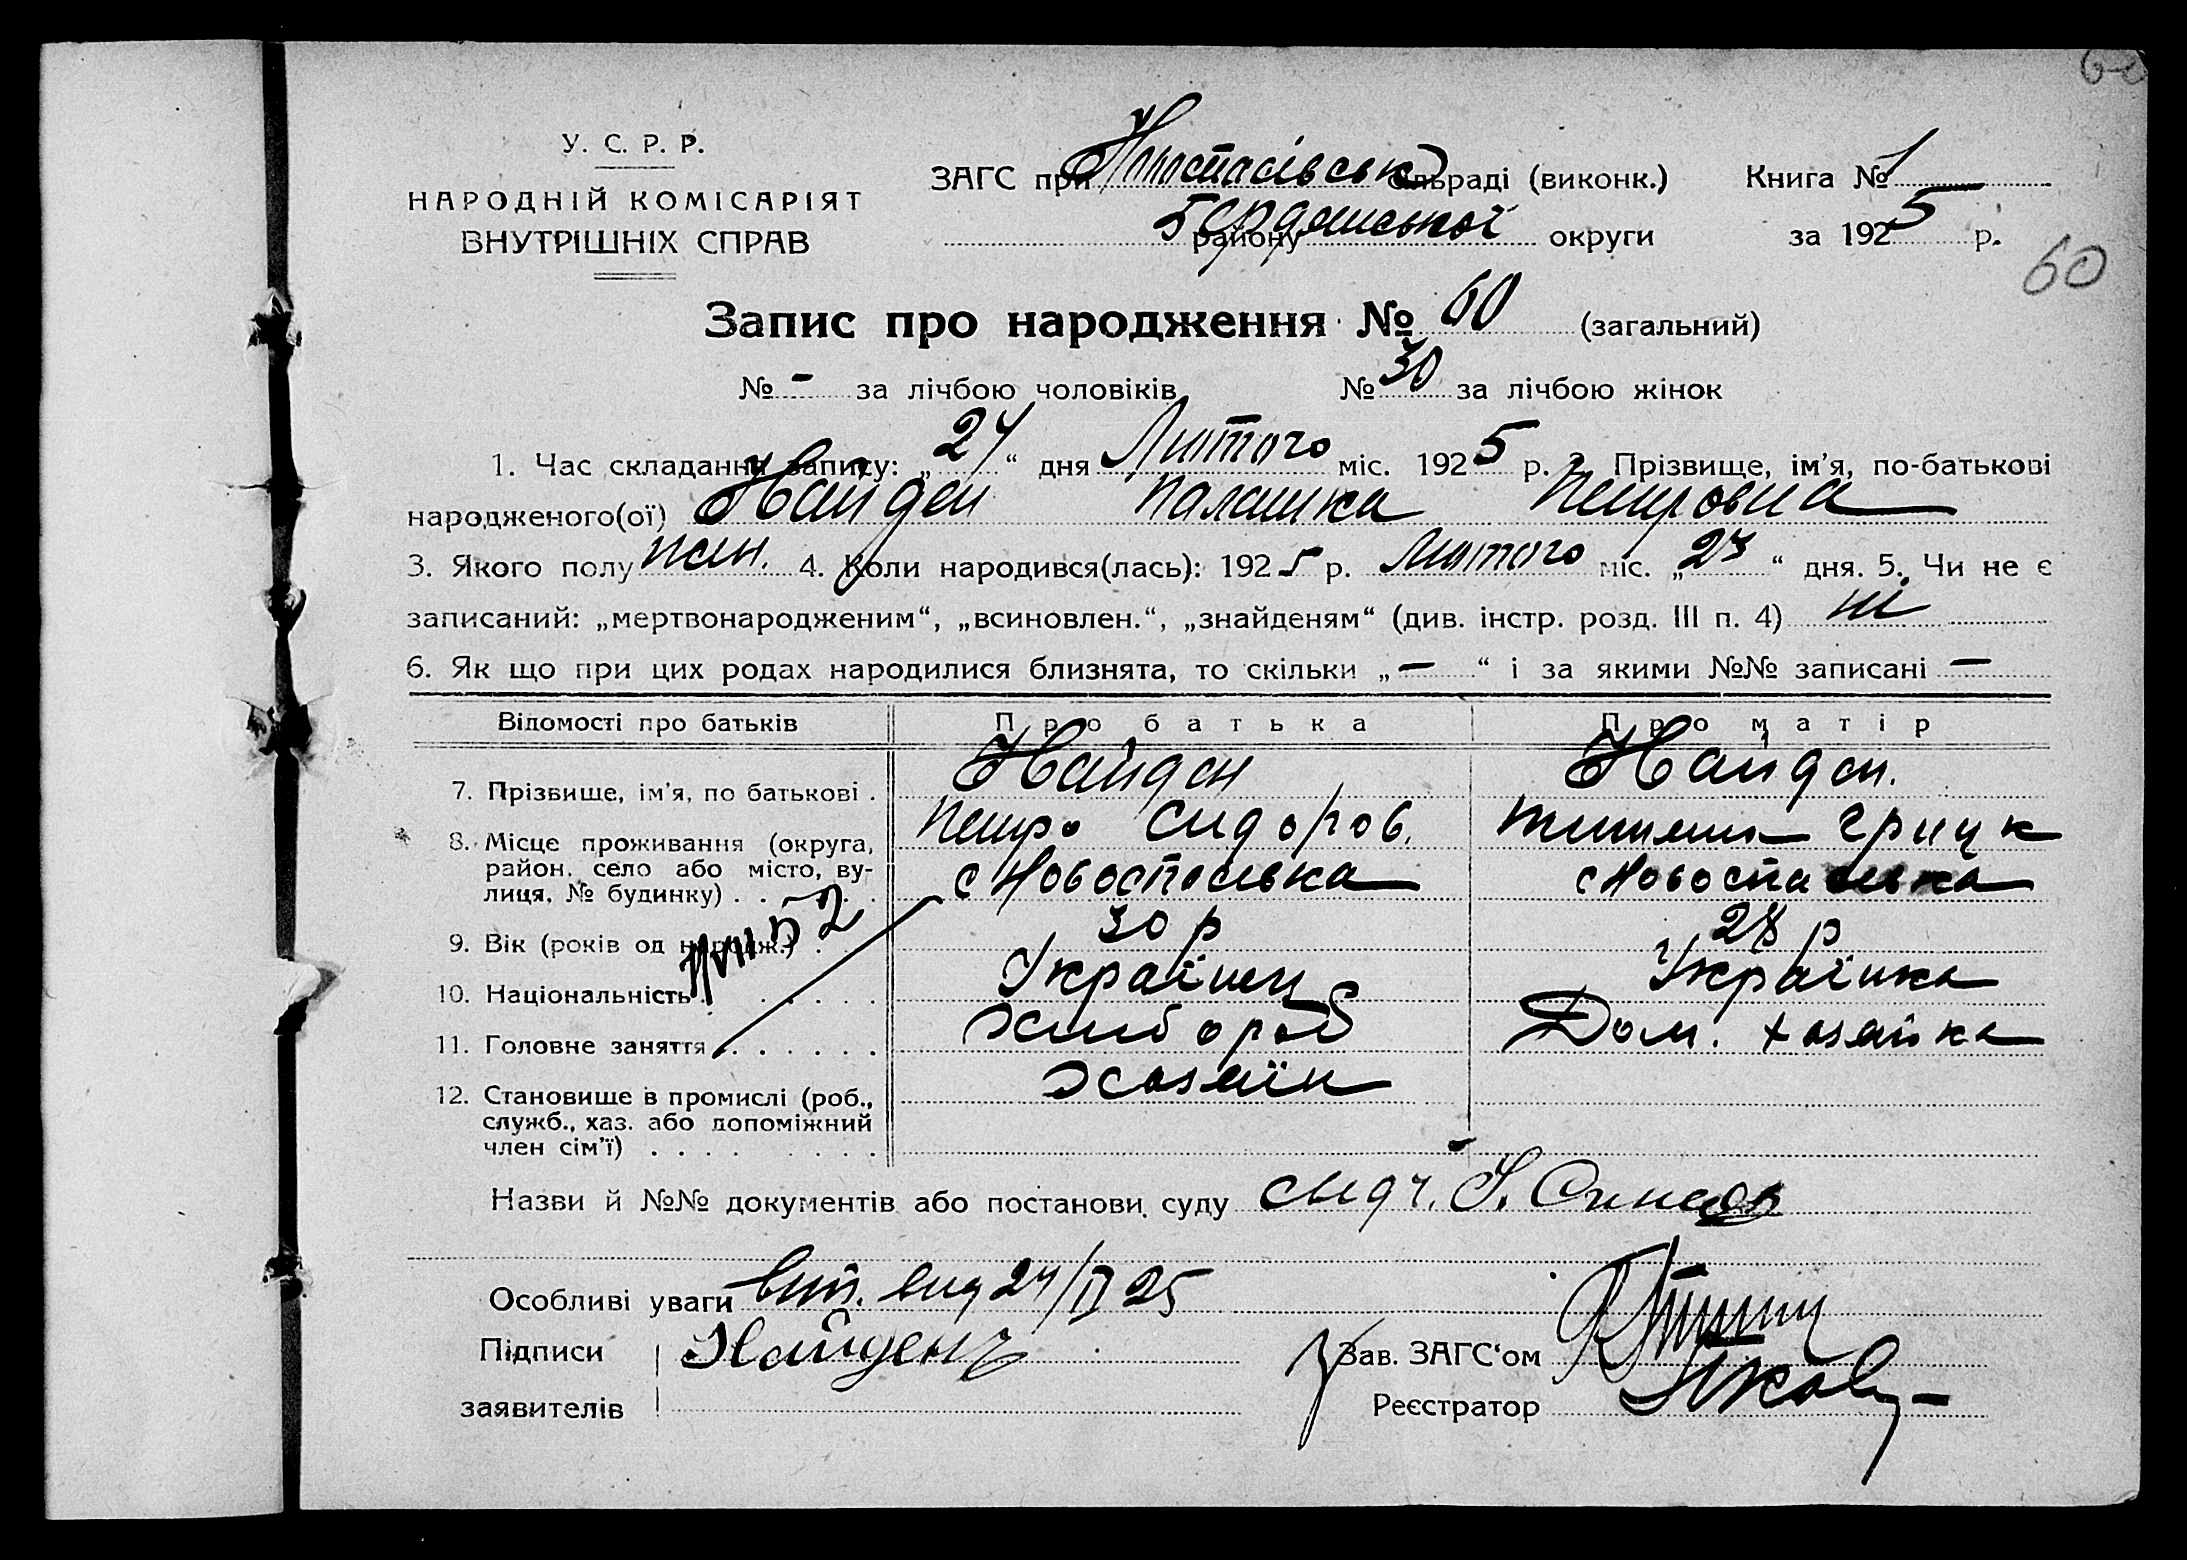 60
У. С. Р. Р.
НАРОДНІЙ КОМІСАРІЯТ
ВНУТРІШНІХ СПРАВ
ЗАГС при Новоспасівськ сільраді (виконк.) Книга № 1
району Бердянської округи за 1925 р.
60
Запис про народження № 60 (загальний)
№ - за лічбою чоловіків № 30 за лічбою жінок
1. Час складання запису: „24“ дня Лютого міс. 1925 р. 2. Прізвище, ім'я, по-батькові
народженого(ої) Найден Палашка Петровна
3. Якого полу жін. 4. Коли народився(лась): 1925 р. Лютого міс. „23“ дня. 5. Чи не є
записаний: „мертвонародженим“, „всиновлен.“, „знайденям“ (див. інстр. розд. III п. 4) ні
6. Як що при цих родах народилися близнята, то скільки „—“ і за якими №№ записані —
Відомості про батьків Про батька Про матір
7. Прізвище, ім'я, по батькові . Найден Найден.
Петро Сидоров. грицк
8. Місце проживання (округа, район, село або місто, вулиця, № будинку) . . . с Новоспасівка с Новоспасівка
52
9. Вік (років од народж.) . . 30 р 28 р
10. Національність . . . . . Українец Українка
11. Головне заняття . . . . . . Хлібороб Дом. хозяйка
12. Становище в промислі (роб., служб., хаз. або допоміжний член сім'ї) . . . . Хозяїн
Назви й №№ документів або постанови суду
Особливі уваги вид 24/II 25
Підписи Найденъ Зав. ЗАГС'ом
заявителів Реєстратор